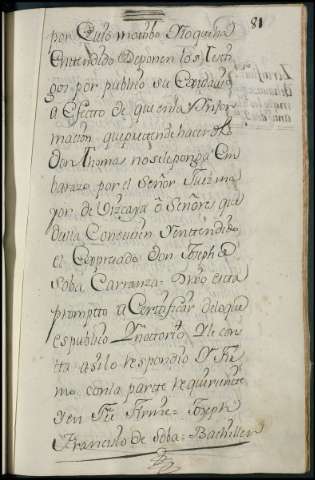 81
por Cuio motibo Noquiha
Entendido Deponen los Testi
gos por publico su Contenido
a Efecto de que en la Ynfor
macion, que pretende hacer el
Don Thomas no se le ponga Em
barazo por el Señor Juez ma
yor de Vizcaya o Señores que
de ella Conocieren Y entendido
el Expresado Don Joseph de
Soba Carranza Dixo esta
prompto a Certificar de lo que
es publico Y notorio Y le cons
ta asi lo respondio Y Fir
mo con la parte requirente
Y en Fee Firme = Joseph
Francisco de Soba = Bachiller